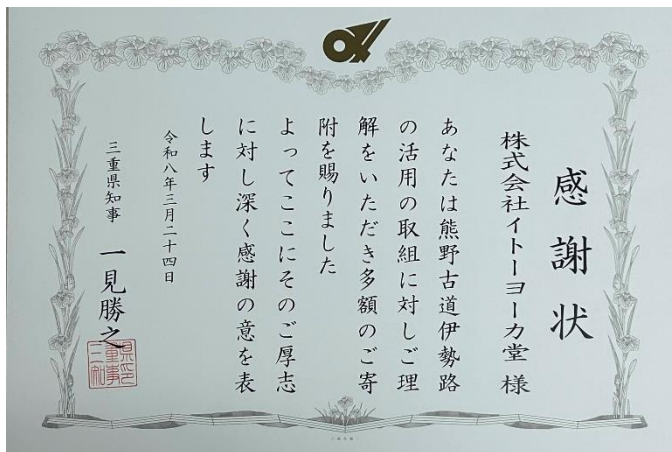 感謝状
株式会社イトーヨーカ堂 様
あなたは熊野古道伊勢路
の活用の取組に対しご理
解をいただき多額のご寄
附を賜りました
よってここにそのご厚志
に対し深く感謝の意を表
します
令和八年三月二十四日
三重県知事 一見勝之